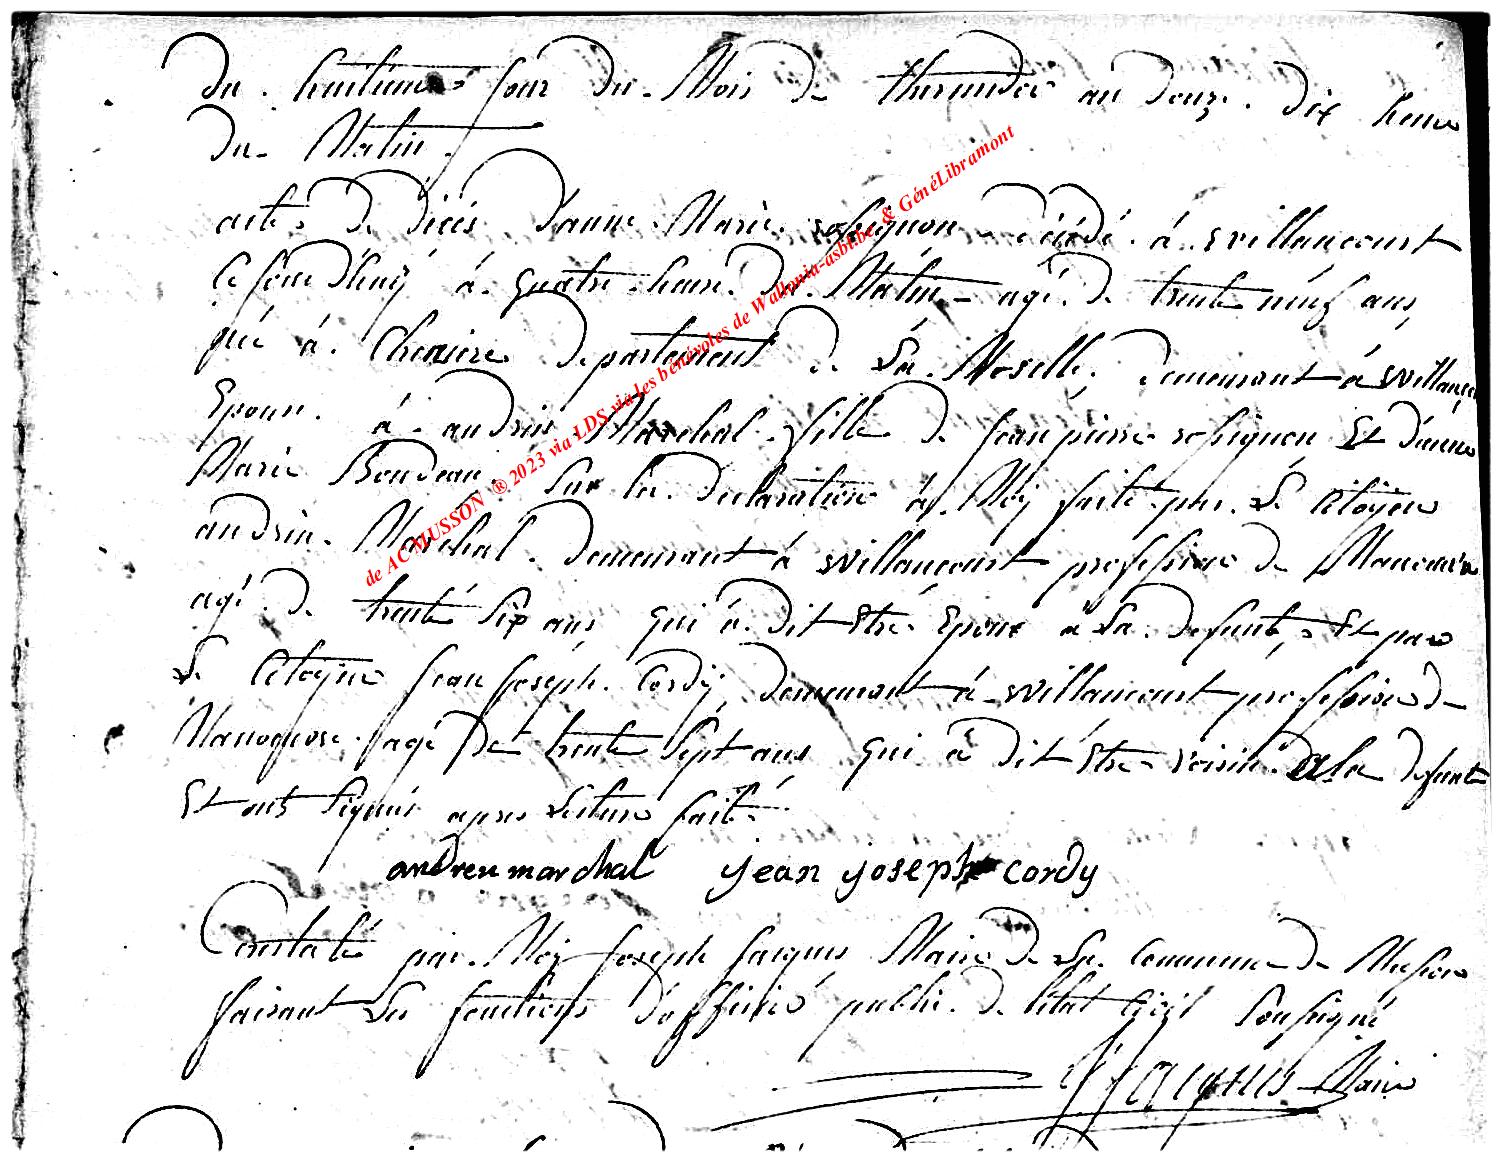 Du huitieme jour du Mois de thermidor an douze. dix heure
du Matin.
acte de décés d'anne Marie rossignon décédé à willancourt
ce jourd'huÿ à quatre heure du Matin agé de trente neuf ans,
née à departement de La Moselle, demeurant à willancourt
Epouse à andrieu Marchal fille de jean pierre rossignon Et d'anne
Marie Bondeau. Sur la declaration à Moÿ faite par Le Citoÿen
andrieu Marchal demeurant à willancourt profession de Manoeuvre
agé de trente Six ans qui à dit Etre Epoux à La defunte, Et par
Le Citoÿen jean joseph Cordÿ demeurant à willancourt profession de
agé de trente Sept ans qui à dit Etre voisin a la defunte
Et ont Signés apres Lecture faite
andreu marchal jean joseph cordy
Constaté par Moÿ joseph jacques Maire de La Commune de Musson
faisant Les fonctions d'officié public de l'état Civil Soussigné
J jacques Maire
de AC MUSSON ® 2023 via LDS via les bénévoles de Wallonia-asbl.be & GénéLibramont